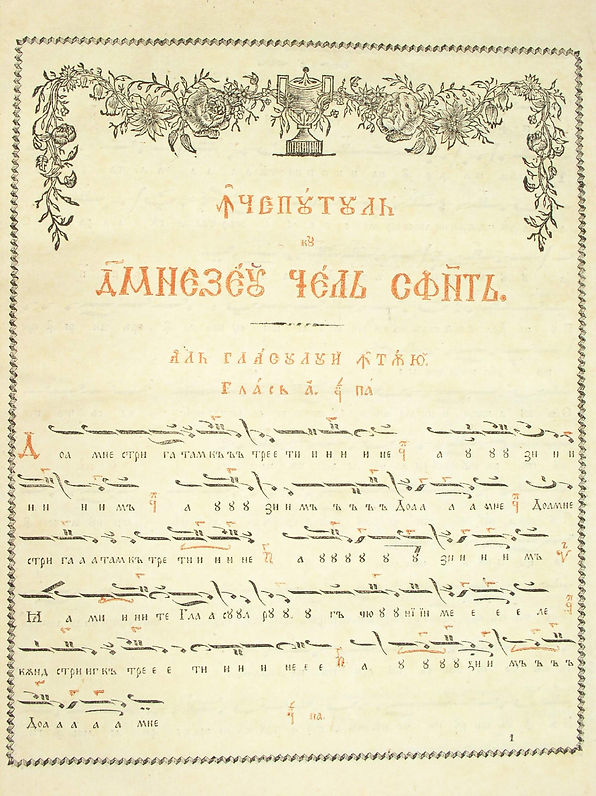 Ꙟчепꙋ́тꙋль
кꙋ
Дм҃незе́ꙋ че́ль сфн҃ть.
А҆ль гла́сꙋлꙋй ꙟтѫ́ю.
Гла́сь а҃. па
Доа мне стри га там къ ъ ъ тре е ти и и и и не а ꙋ ꙋ ꙋ зи и и
и и и мъ а ꙋ ꙋ ꙋ зи и мъ ъ ъ ъ ъ Доа а а а мне Доамне
стри га а а там къ тре ти и и и и не а ꙋ ꙋ ꙋ ꙋ ꙋ ꙋ зи и и и мъ
а ми и и и те Гла а сꙋ ꙋл рꙋ ꙋ ꙋ гъ чю ꙋ ꙋ нїи їи ме е е е е ле
кѫнд стри иг къ тре е е ти и и и не е е а ꙋ ꙋ ꙋ ꙋ зи и мъ ъ ъ ъ
Доа а а а а мне па.
1